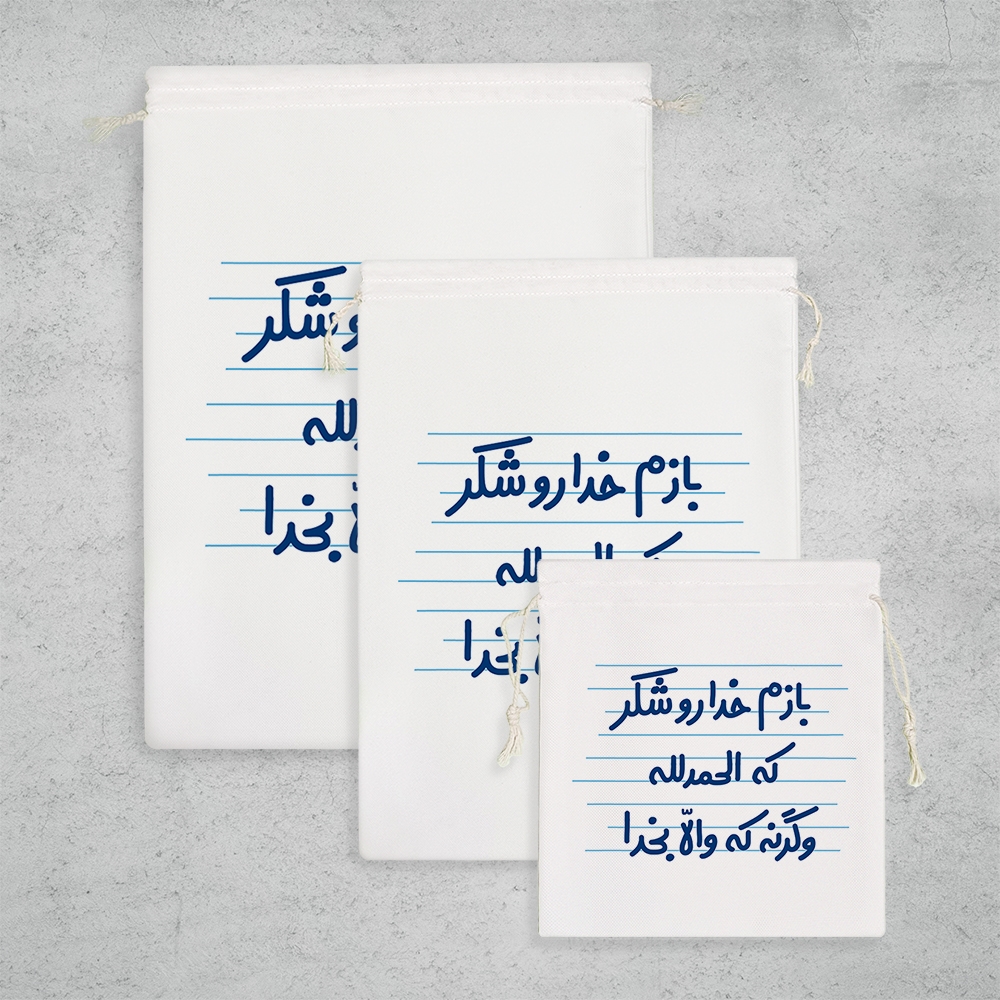 وشکر
لله
بخدا
بازم خدا رو شکر
لله
بخدا
بازم خدا رو شکر
که الحمدلله
وگرنه که والّا بخدا